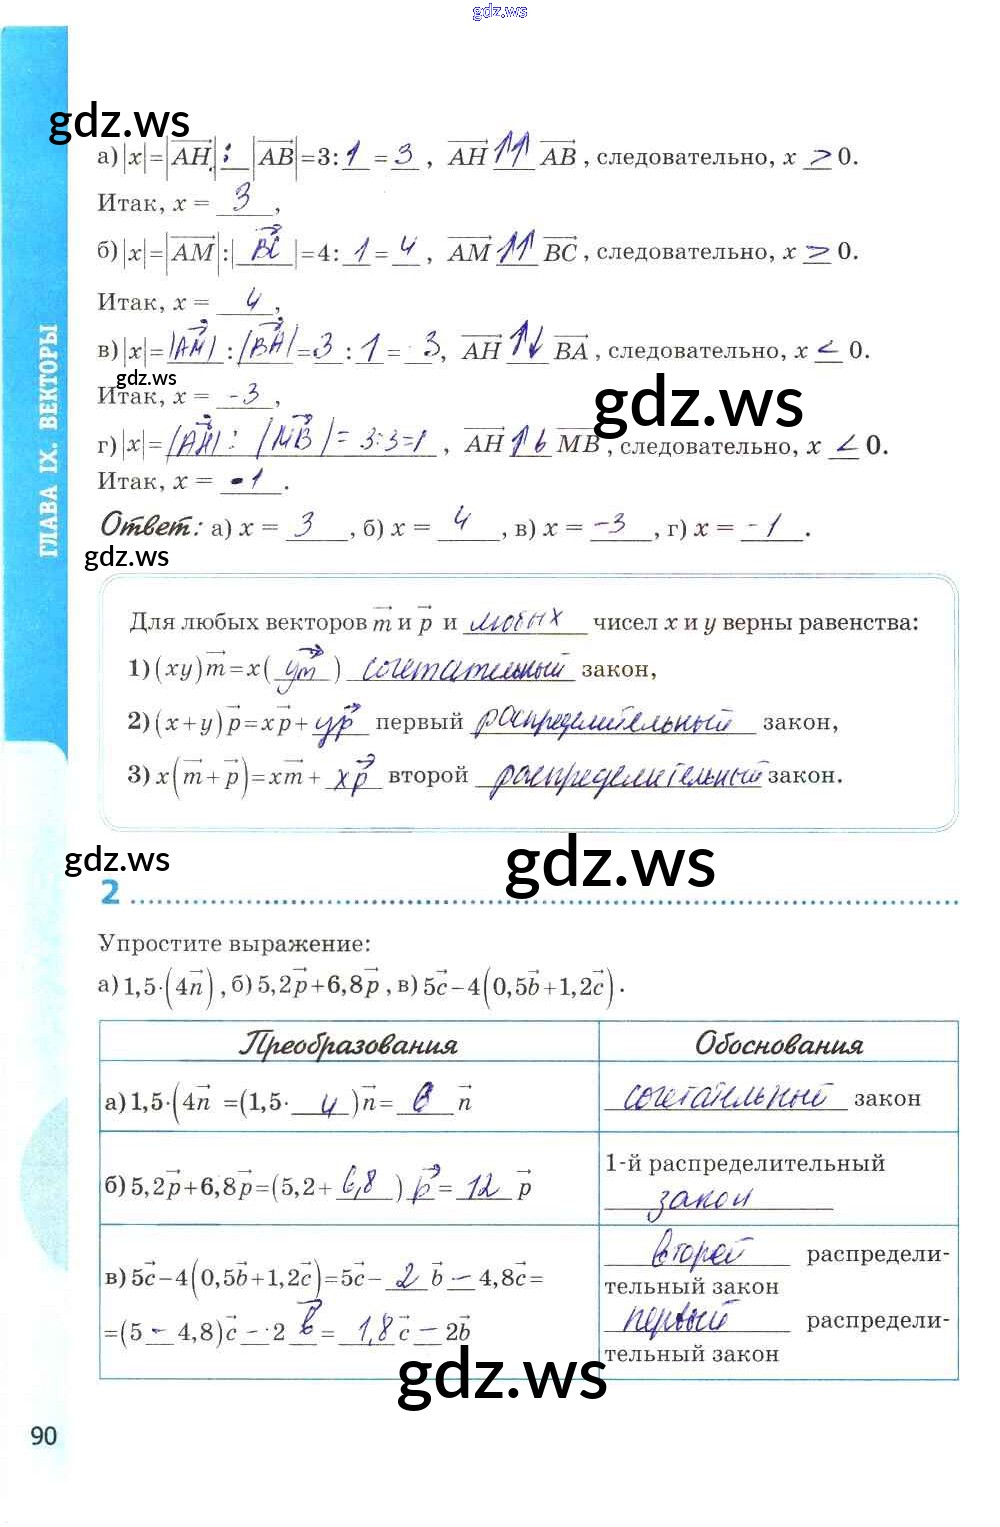 gdz.ws
gdz.ws
а) |x|=|AH| : |AB|=3: 1 = 3 , AH ↑↑ AB , следовательно, x > 0.
Итак, x = 3 ,
б) |x|=|AM|:| BC |=4: 1 = 4 , AM ↑↑ BC , следовательно, x > 0.
Итак, x = 4 ,
в) |x|= |AM| : |BA| = 3 : 1 = 3, AH ↑↓ BA , следовательно, x < 0.
gdz.ws
Итак, x = -3 ,
gdz.ws
г) |x|= |AH| : |MB| = 3:3=1 , AH ↑↓ MB , следовательно, x < 0.
Итак, x = -1 .
Ответ: а) x = 3 , б) x = 4 , в) x = -3 , г) x = -1 .
gdz.ws
ГЛАВА IX. ВЕКТОРЫ
Для любых векторов m и p и любых чисел x и y верны равенства:
1) (xy)m=x( ym ) сочетательный закон,
2) (x+y)p=xp+ yp первый распределительный закон,
3) x(m+p)=xm+ xp второй распределительный закон.
gdz.ws
gdz.ws
2
Упростите выражение:
а) 1,5·(4n) , б) 5,2p+6,8p , в) 5c−4(0,5b+1,2c) .
Преобразования Обоснования
а) 1,5·(4n =(1,5· 4 )n= 6 n сочетательный закон
б) 5,2p+6,8p=(5,2+ 6,8 ) p = 12 p 1-й распределительный
закон
в) 5c−4(0,5b+1,2c)=5c− 2 b − 4,8c=
=(5 − 4,8)c − 2 b = 1,8 c − 2b
второй распредели-
тельный закон
первый распредели-
тельный закон
gdz.ws
90